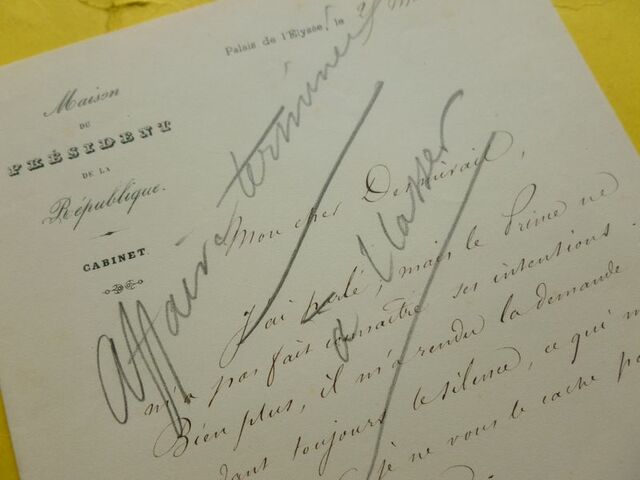 Palais de l'Elysée, le
Maison
DU
PRÉSIDENT
DE LA
République.
CABINET.
Affaire terminée
à classer
Mon cher
J'ai parlé, mais le Prince ne
m'a pas fait connaître ses intentions.
Bien plus, il m'a rendu la demande
toujours le silence, ce qui
je ne vous le cache